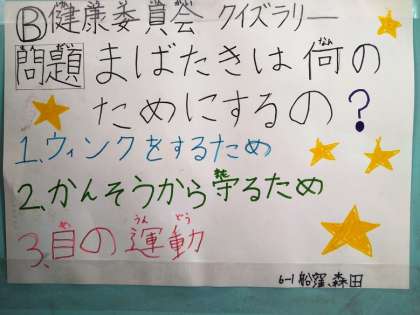 Ⓑ健康委員会 クイズラリー
問題 まばたきは何(なん)の
ためにするの?
1.ウィンクをするため
2.かんそうから守(まも)るため
3.目(め)の運動(うんどう)
6-1 船窪、森田